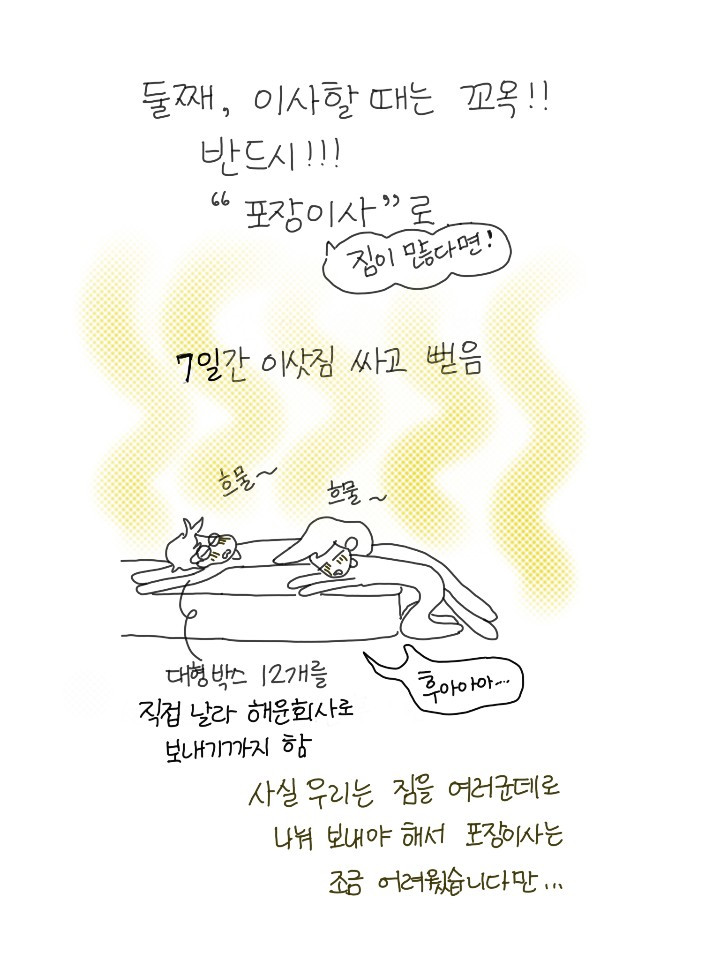 둘째, 이사할 때는 꼬옥!!
반드시!!!
“포장이사”로
짐이 많다면!
7일간 이삿짐 싸고 뻗음
흐물~
흐물~
대형박스 12개를
직접 날라 해운회사로
보내기까지 함
후아아아....
사실 우리는 짐을 여러군데로
나눠 보내야 해서 포장이사는
조금 어려웠습니다만...